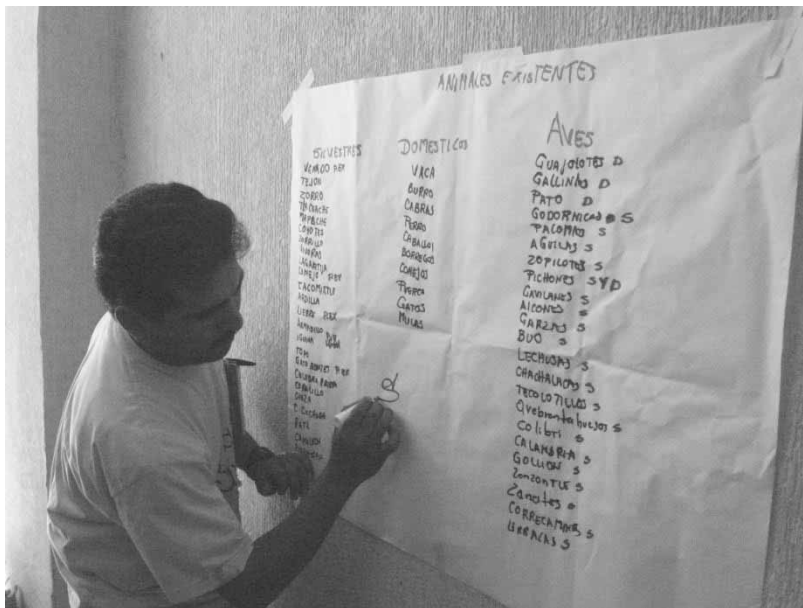 ANIMALES EXISTENTES
SILVESTRES
VENADO PEX
TEJON
ZORRO
TLACOACHE
MAPACHE
COYOTES
ZORRILLO
LAGARTIJA
CONEJO PEX
CACOMIXTLE
ARDILLA
LIEBRE PEX
ARMADILLO
IGUANA
TOPO
GATO MONTES PEX
CULEBRA
CORALILLO
RATA
DOMESTICOS
VACA
BURRO
CABRAS
PERRO
CABALLOS
BORREGOS
CONEJOS
PUERCO
GATOS
MULAS
AVES
GUAJOLOTES D
GALLINAS D
PATO D
GODORNICES S
PALOMAS S
AGUILAS S
ZOPILOTES S
PICHONES S Y D
GAVILANES S
ALCONES S
GARZAS S
BUO S
LECHUSAS S
CHACHALACAS S
TECOLOTILLOS S
Quebrantahuesos S
Colibri S
CALANDRIA S
GOLLION S
ZONZONTLE S
Zanates
CORRECAMINOS S
URRACAS S
S